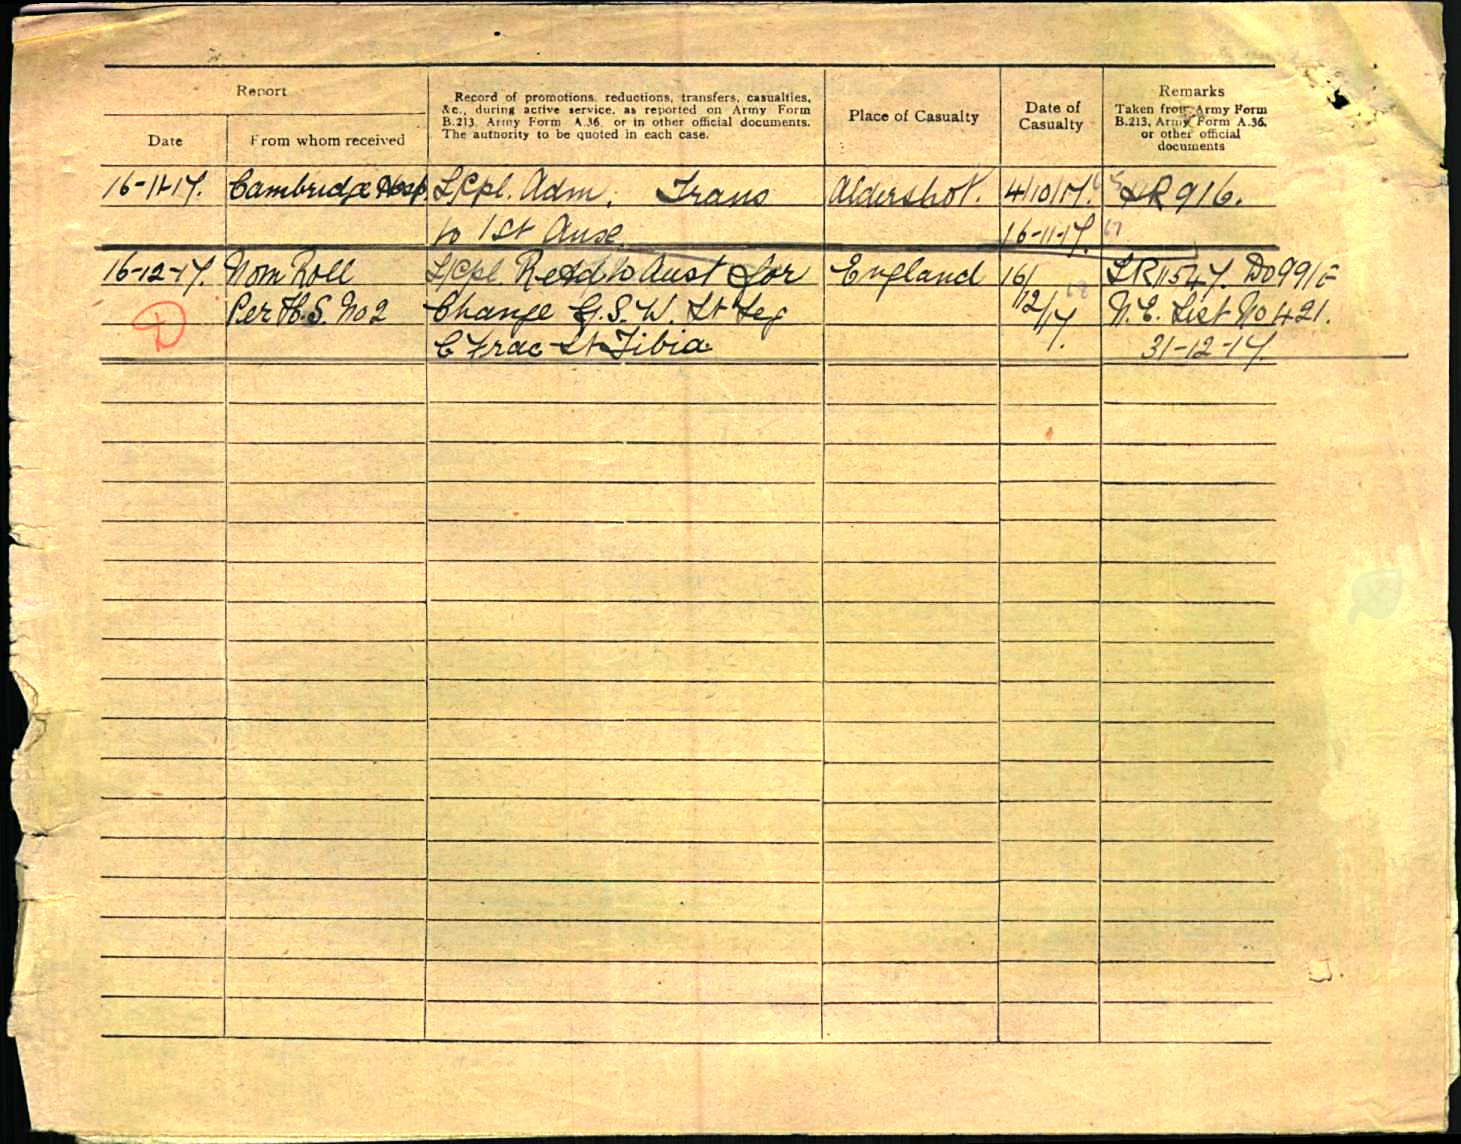 Report
Record of promotions, reductions, transfers, casualties, &c., during active service, as reported on Army Form B.213, Army Form A.36, or in other official documents. The authority to be quoted in each case.
Place of Casualty
Date of Casualty
Remarks Taken from Army Form B.213, Army Form A.36, or other official documents
Date
From whom received
16-11-17. Cambridge Hosp. L/Cpl. Adm. Trans Aldershot. 4/10/17. LR 916.
to 1st Aux. 16-11-17.
16-12-17. Nom Roll L/Cpl. Retd to Aust for England 16/ LR 11547. DO991
Per H.S. No 2 Change G.S.W. Lt Leg 12/ N.E. List No 421.
D
C Frac Lt Tibia 17. 31-12-17.